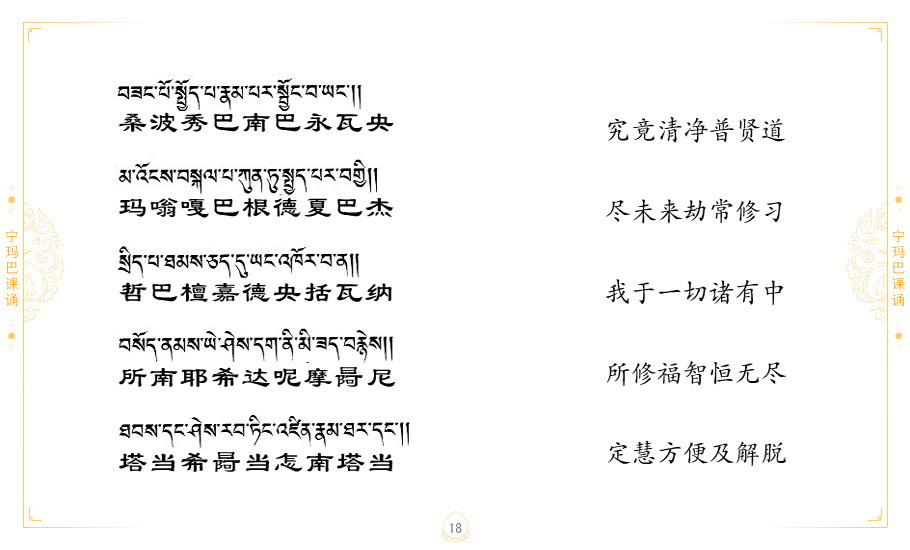 བཟང་པོ་སྤྱོད་པ་རྣམ་པར་སྦྱོང་བ་ཡང་།།
桑波秀巴南巴永瓦央
究竟清净普贤道
མ་འོངས་བསྐལ་པ་ཀུན་ཏུ་སྤྱད་པར་བགྱི།།
玛嗡嘎巴根德夏巴杰
尽未来劫常修习
སྲིད་པ་ཐམས་ཅད་དུ་ཡང་འཁོར་བ་ན།།
哲巴檀嘉德央括瓦纳
我于一切诸有中
བསོད་ནམས་ཡེ་ཤེས་དག་ནི་མི་ཟད་བརྙེས།།
所南耶希达呢摩尼
所修福智恒无尽
ཐབས་དང་ཤེས་རབ་ཏིང་འཛིན་རྣམ་ཐར་དང་།།
塔当希当怎南塔当
定慧方便及解脱
宁玛巴课诵
宁玛巴课诵
18